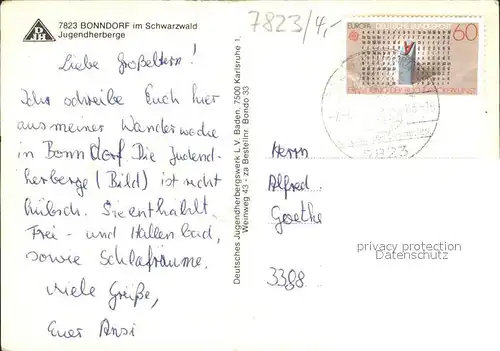 DJH
7823 BONNDORF im Schwarzwald
Jugendherberge
7823/4,-
Liebe Großeltern!
Ich schreibe Euch hier
aus meiner Wanderwoche
in Bonndorf. Die Jugend-
herberge (Bild) ist recht
hübsch. Sie enthält
Frei- und Hallenbad,
sowie Schlafräume.
Viele Grüße,
Euer Ansi
Deutsches Jugendherbergswerk L.V. Baden 7500 Karlsruhe 1,
Weinweg 43 - za Bestellnr. Bondo 33
EUROPA
DEUTSCHE BUNDESPOST
60
7823
Herrn
Alfred
Goethe
3388
privacy protection
watermark